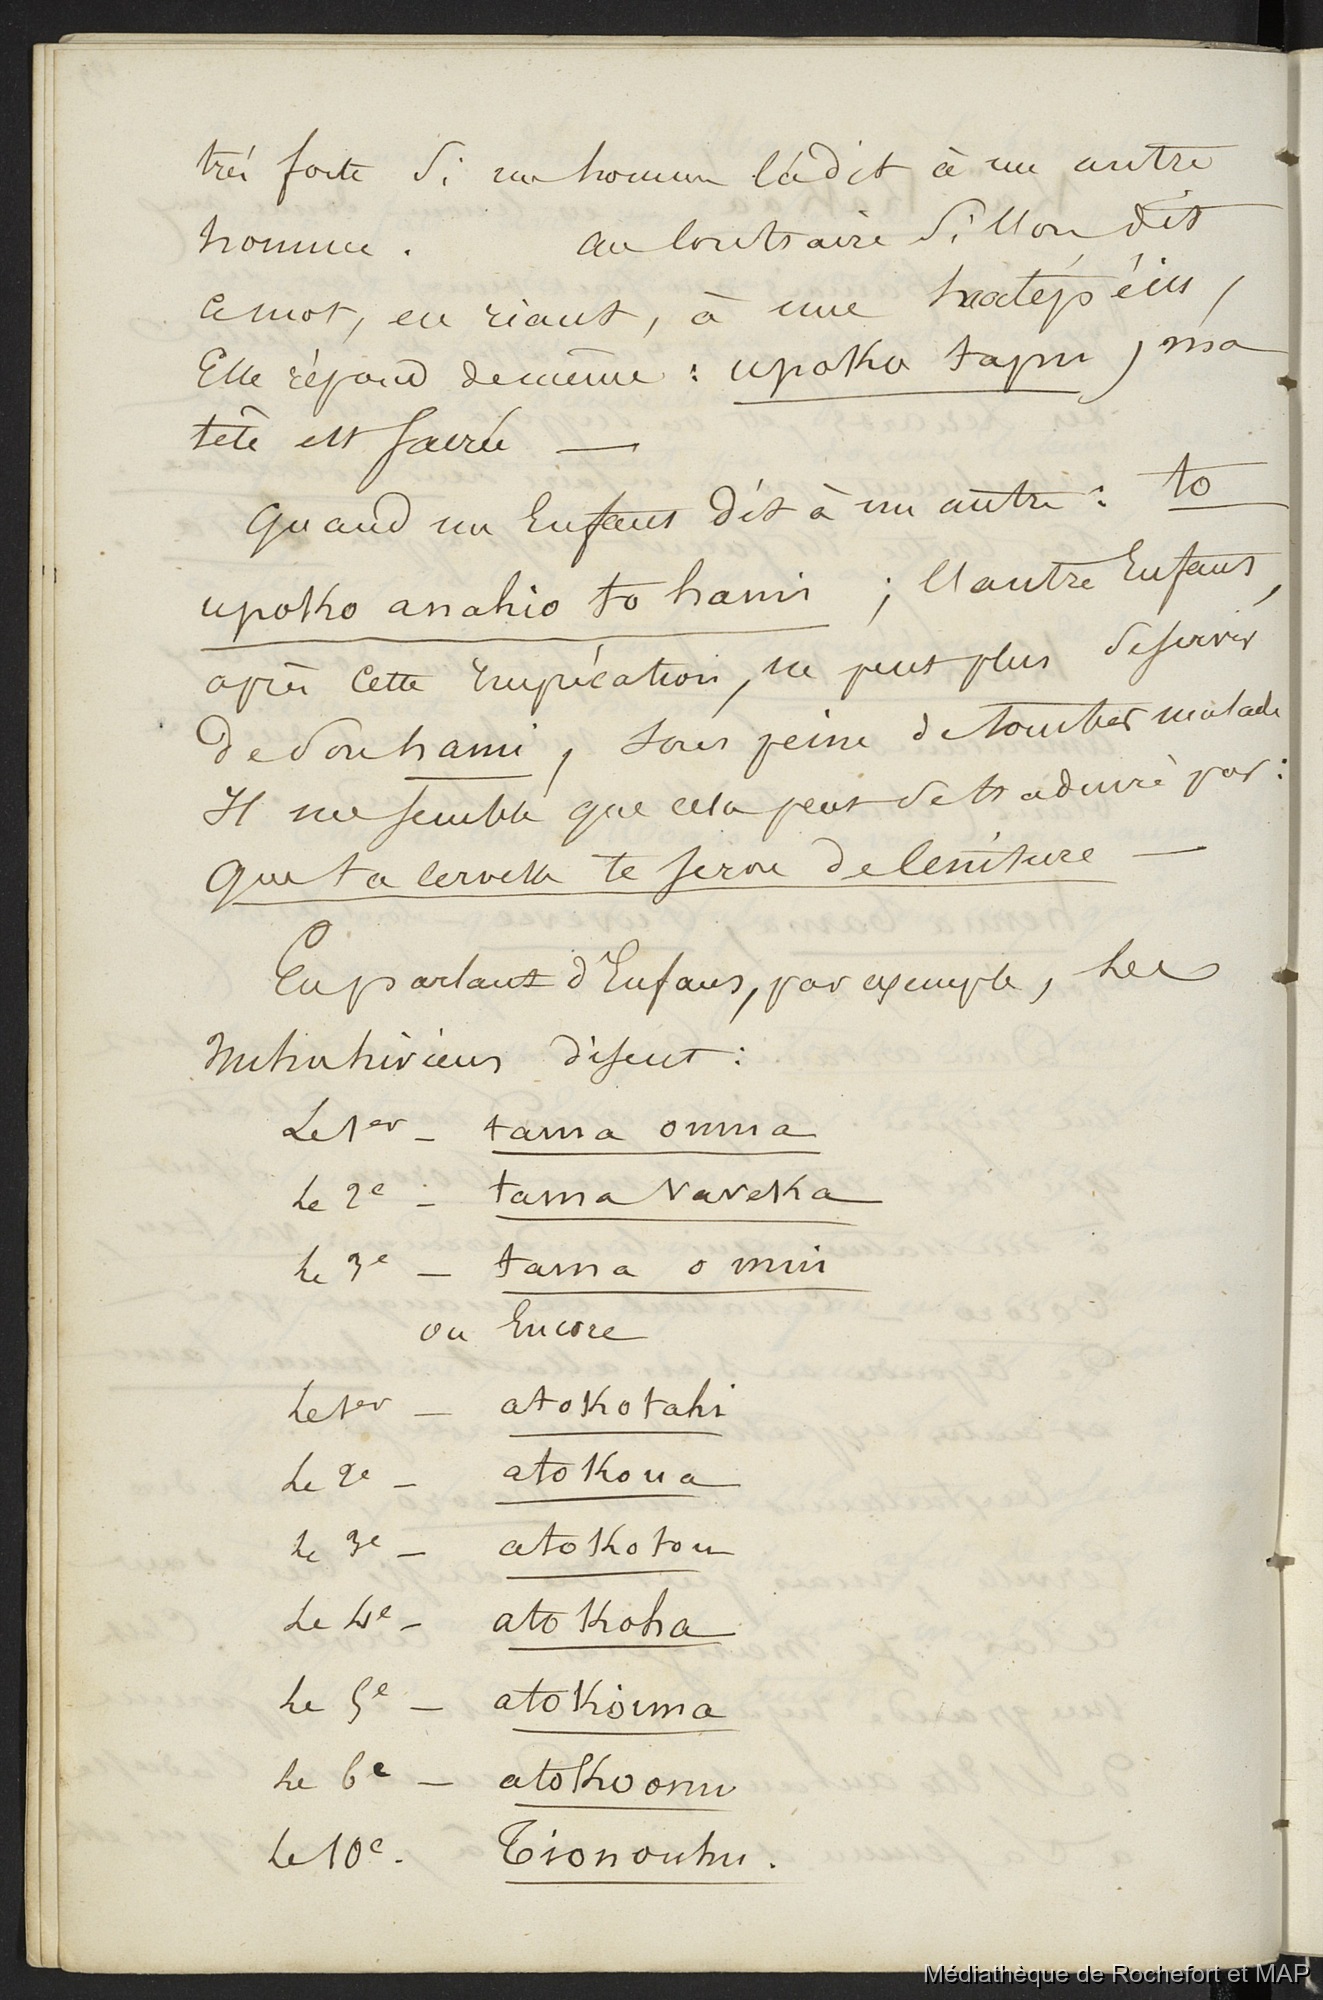 très forte si un homme l'a dit à un autre
homme. au contraire si l'on dit
ce mot, en riant, à une hatépéiu,
Elle répond de même : upoko tapu, ma
tête est sacrée —
Quand un Enfant dit à un autre : to
upoko anahio to hami ; l'autre Enfant,
après cette imprécation, ne peut plus se servir
de son hami, sous peine de tomber malade
Il me semble que cela peut se traduire par :
Que ta cervelle te serve de ceinture —
En parlant d'Enfans, par exemple, les
Nukuhiviens disent :
Le 1er — tama omua
Le 2e — tama vaveka
Le 3e — tama o muii
ou Encore
Le 1er — atokotahi
Le 2e — atokoua
Le 3e — atokotou
Le 4e — atokoha
Le 5e — atokoima
Le 6e — atokoonu
Le 10e. Tionouhu.
Médiathèque de Rochefort et MAP